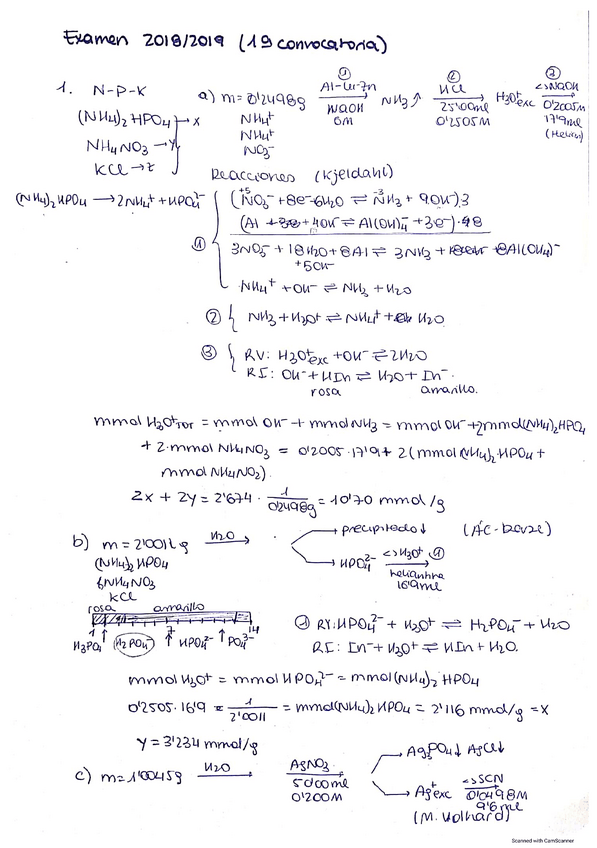 Examen 2018/2019 (1ª convocatoria)
1. N-P-K
(NH4)2 HPO4 → x
NH4NO3 → y
KCl → z
a) m = 0'2498g
NH4+
NH4+
NO3-
① Al-Cu-Zn
NaOH
6M
NH3 ↑
② HCl
25'00ml
0'2505M
H3O+exc
③ <>NaOH
0'2005M
17'9ml
(Helian)
Reacciones (Kjeldahl)
(NH4)2HPO4 → 2NH4+ + HPO4 2-
① (NO3- + 8e- + 6H2O ⇌ NH3 + 9OH-).3
+5 -3
(Al + 4OH- ⇌ Al(OH)4- + 3e-).8
3NO3- + 18H2O + 8Al ⇌ 3NH3 + 8Al(OH4)-
+5OH-
NH4+ + OH- ⇌ NH3 + H2O
② { NH3 + H3O+ ⇌ NH4+ + H2O
③ { RV: H3O+exc + OH- ⇌ 2H2O
RI: OH- + HIn ⇌ H2O + In-
rosa amarillo.
mmol H3O+TOT = mmol OH- + mmol NH3 = mmol OH- + 2mmol(NH4)2HPO4
+ 2·mmol NH4NO3 = 0'2005·17'9 + 2(mmol (NH4)2HPO4 +
mmol NH4NO2).
2x + 2y = 2'674 · 1/0'2498g = 10'70 mmol/g
b) m = 2'0011 g H2O →
(NH4)2 HPO4
NH4NO3
KCl
precipitado ↓ (Ác-base)
HPO4 2- <>H3O+ ①
heliantina
16'9ml
rosa amarillo
1 7 14
H3PO4 H2PO4- HPO4 2- PO4 3-
① RV: HPO4 2- + H3O+ ⇌ H2PO4- + H2O
RI: In- + H3O+ ⇌ HIn + H2O.
mmol H3O+ = mmol HPO4 2- = mmol (NH4)2 HPO4
0'2505·16'9 · 1/2'0011 = mmol(NH4)2 HPO4 = 2'116 mmol/g = x
y = 3'234 mmol/g
c) m = 1'0045g H2O → AgNO3
50'00ml
0'200M
Ag3PO4↓ AgCl↓
Ag+exc <>SCN
0'0498M
9'6ml
(M. Volhard)
Scanned with CamScanner